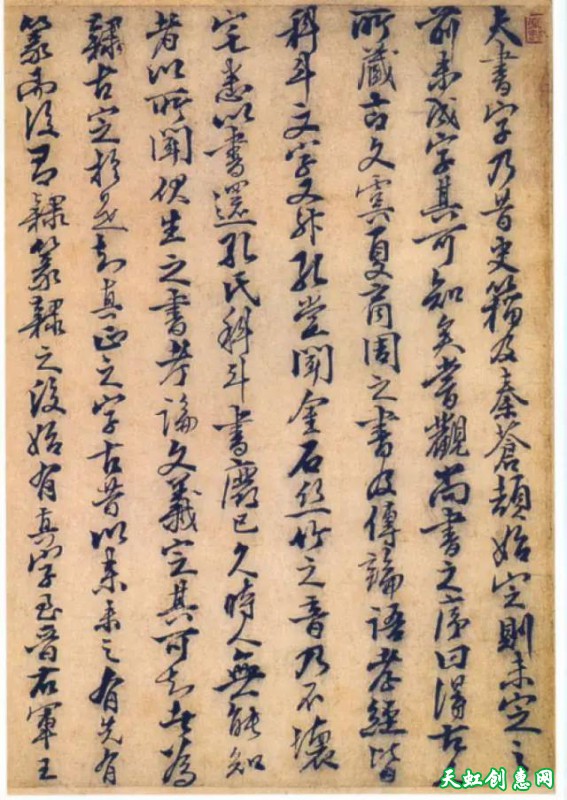 夫書字乃昔史籀及秦蒼頡始定則未定之
前未成字其可知矣嘗觀尚書之序曰得古
所藏古文虞夏商周之書及傳論語孝經皆
科斗文字又升孔堂聞金石絲竹之音乃不壞
宅悉以書還孔氏科斗書廢已久時人無能知
者以所聞伏生之書考論文義定其可知者為
隸古定於是知真正之字古昔以來未之有先有
篆而後有隸篆隸之後始有真字至晉右軍王
天虹创惠网